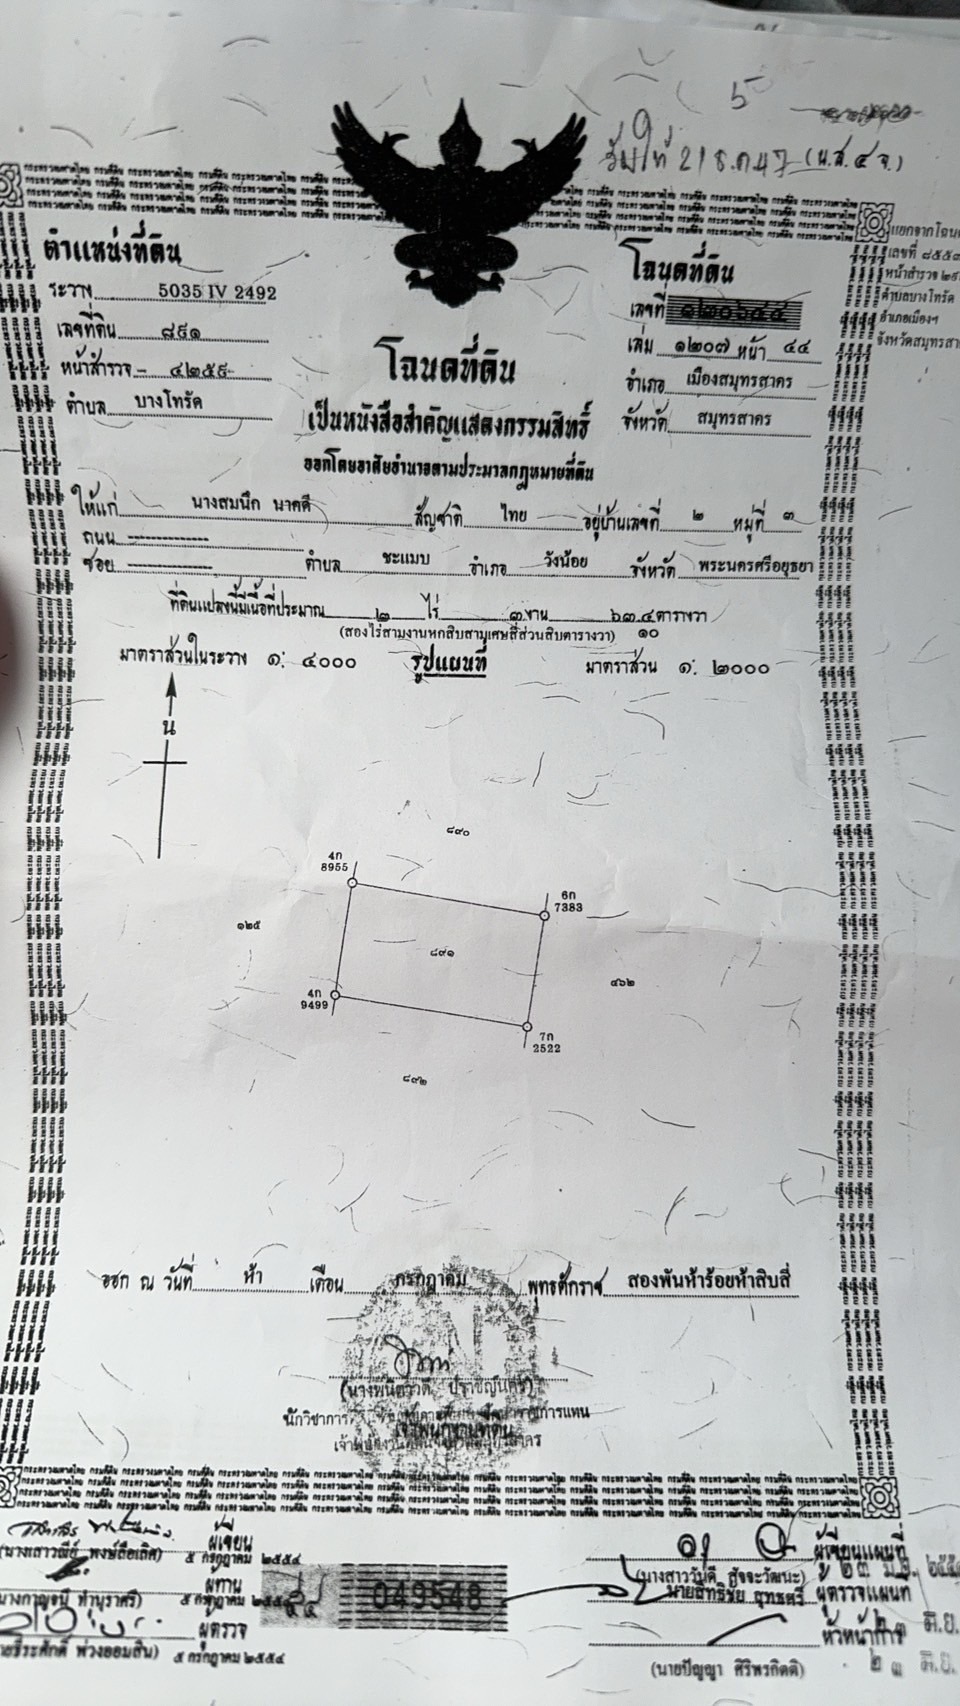 ๖
วันที่ 21 ธ.ค 47 (น.ส.๔ จ.)
แยกจากโฉนด
เลขที่ ๘๕๕๙
หน้าสำรวจ ๒๙
ตำบลบางโทรัด
อำเภอเมืองฯ
จังหวัดสมุทรสา
ตำแหน่งที่ดิน
ระวาง 5035 IV 2492
เลขที่ดิน ๘๙๑
หน้าสำรวจ ๔๒๕๙
ตำบล บางโทรัด
โฉนดที่ดิน
เลขที่ ๑๒๐๖๔๔
เล่ม ๑๒๐๗ หน้า ๔๔
อำเภอ เมืองสมุทรสาคร
จังหวัด สมุทรสาคร
โฉนดที่ดิน
เป็นหนังสือสำคัญแสดงกรรมสิทธิ์
ออกโดยอาศัยอำนาจตามประมวลกฎหมายที่ดิน
ให้แก่ นางสมนึก นาคดี สัญชาติ ไทย อยู่บ้านเลขที่ ๒ หมู่ที่ ๓
ถนน --------------
ซอย -------------- ตำบล ชะแมบ อำเภอ วังน้อย จังหวัด พระนครศรีอยุธยา
ที่ดินแปลงนี้มีเนื้อที่ประมาณ ๒ ไร่ ๓ งาน ๖๓.๔ ตารางวา
(สองไร่สามงานหกสิบสามเศษสี่ส่วนสิบตารางวา) ๑๐
มาตราส่วนในระวาง ๑: ๔๐๐๐ รูปแผนที่ มาตราส่วน ๑: ๒๐๐๐
น
๘๙๐
4ก
8955
6ก
7383
๑๒๕
๘๙๑
๔๖๒
4ก
9499
7ก
2522
๘๙๒
ออก ณ วันที่ ห้า เดือน กรกฎาคม พุทธศักราช สองพันห้าร้อยห้าสิบสี่
นักวิชาการ
เจ้าพนักงานที่ดิน
ผู้เขียน
(นางเสาวณีย์ พงษ์ลือเลิศ) ๕ กรกฎาคม ๒๕๕๔
ผู้ทาน
๕ กรกฎาคม ๒๕๕๔
ผู้ตรวจ
๕ กรกฎาคม ๒๕๕๔
049548
ผู้เขียนแผนที่
(นางสาววันดี สัจจะวัฒนะ)
นายสิทธิชัย สุทธศรี ผู้ตรวจแผนที่
หัวหน้าการ
(นายปัญญา ศิริพรกิตติ) ๒๓ มิ.ย.